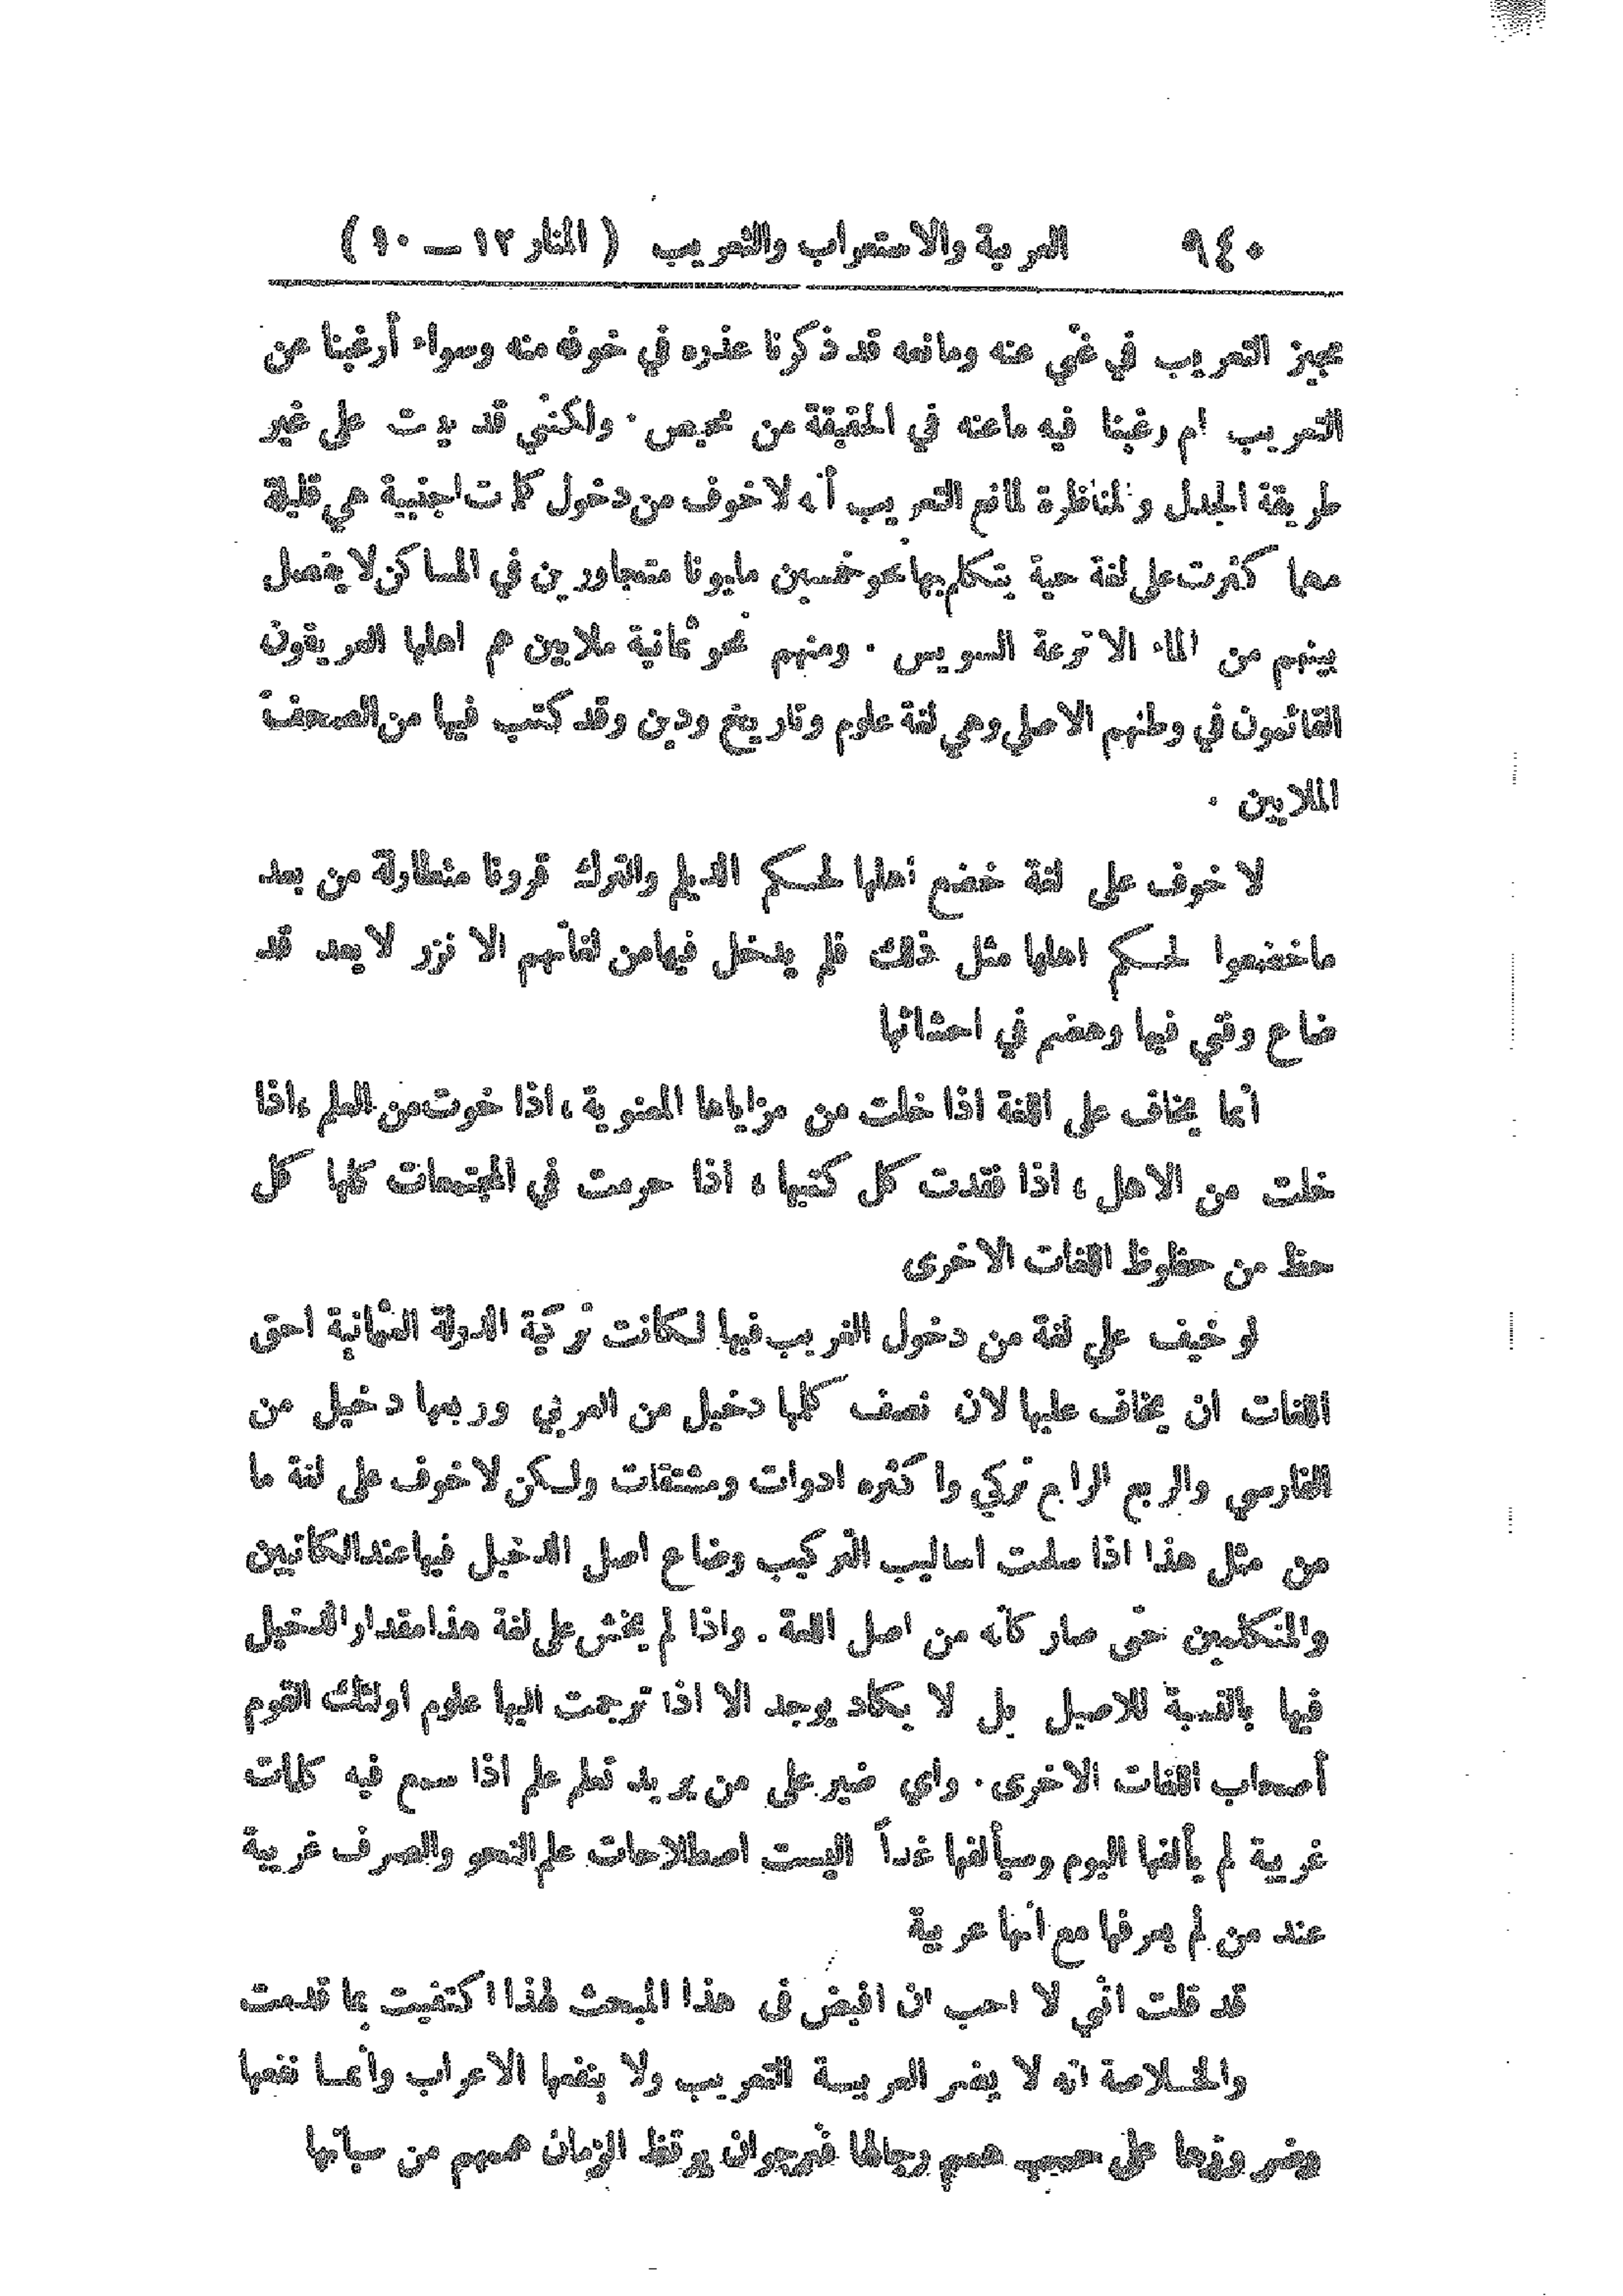 ٩٤٠ العربية والاستعراب والتعريب ( المنار ١٢ — ١٠ )
مجيز التعريب في غنى عنه ومانعه قد ذكرنا عذره في خوفه منه وسواء أرغبنا عن
التعريب ام رغبنا فيه ماعنه في الحقيقة من محيص . ولكني قد بدت على غير
طريقة الجدل والمناظرة لمانع التعريب أنه لاخوف من دخول كلمات اجنبية هي قليلة
مهما كثرت على لغة حية يتكلم بها نحو خمسين مليونا متجاورين في المساكن لا يفصل
بينهم من الماء الا ترعة السويس . ومنهم نحو ثمانية ملايين هم اهلها العريقون
القائمون في وطنهم الاصلي وهي لغة علوم وتاريخ ودين وقد كتب فيها من الصحف
الملايين .
لا خوف على لغة خضع أهلها لحكم الديلم والترك قرونا متطاولة من بعد
ماخضعوا لحكم اهلها مثل ذلك فلم يدخل فيها من لغاتهم الا نزر لا يعد قد
ضاع وفني فيها وهضم في احشائها
انما يخاف على اللغة اذا خلت من مزاياها المعنوية ، اذا خوت من العلم ، اذا
خلت من الاهل ، اذا فقدت كل كتبها ، اذا حرمت في المجتمعات كلها كل
حظ من حظوظ اللغات الاخرى
لو خيف على لغة من دخول الغريب فيها لكانت تركية الدولة العثمانية احق
اللغات ان يخاف عليها لان نصف كلها دخيل من العربي وربعها دخيل من
الفارسي والربع الرابع تركي واكثره ادوات ومشتقات ولكن لاخوف على لغة ما
من مثل هذا اذا سلمت اساليب التركيب وضاع اصل الدخيل فيها عند الكاتبين
والمتكلمين حتى صار كأنه من اصل اللغة . واذا لم يخش على لغة هذا مقدار الدخيل
فيها بالنسبة للاصيل بل لا يكاد يوجد الا اذا ترجمت اليها علوم اولئك القوم
أصحاب اللغات الاخرى . واي ضير على من يريد تعلم علم اذا سمع فيه كلمات
غريبة لم يألفها اليوم وسيألفها غداً اليست اصطلاحات علم النحو والصرف غريبة
عند من لم يعرفها مع انها عربية
قد قلت اني لا احب ان افيض فى هذا المبحث لهذا اكتفيت بما قدمت
والخلاصة انه لا يضر العربية التعريب ولا ينفعها الاعراب وانما نفعها
وضررها على حسب همم رجالها فنرجو ان يوقظ الزمان هممهم من سباتها